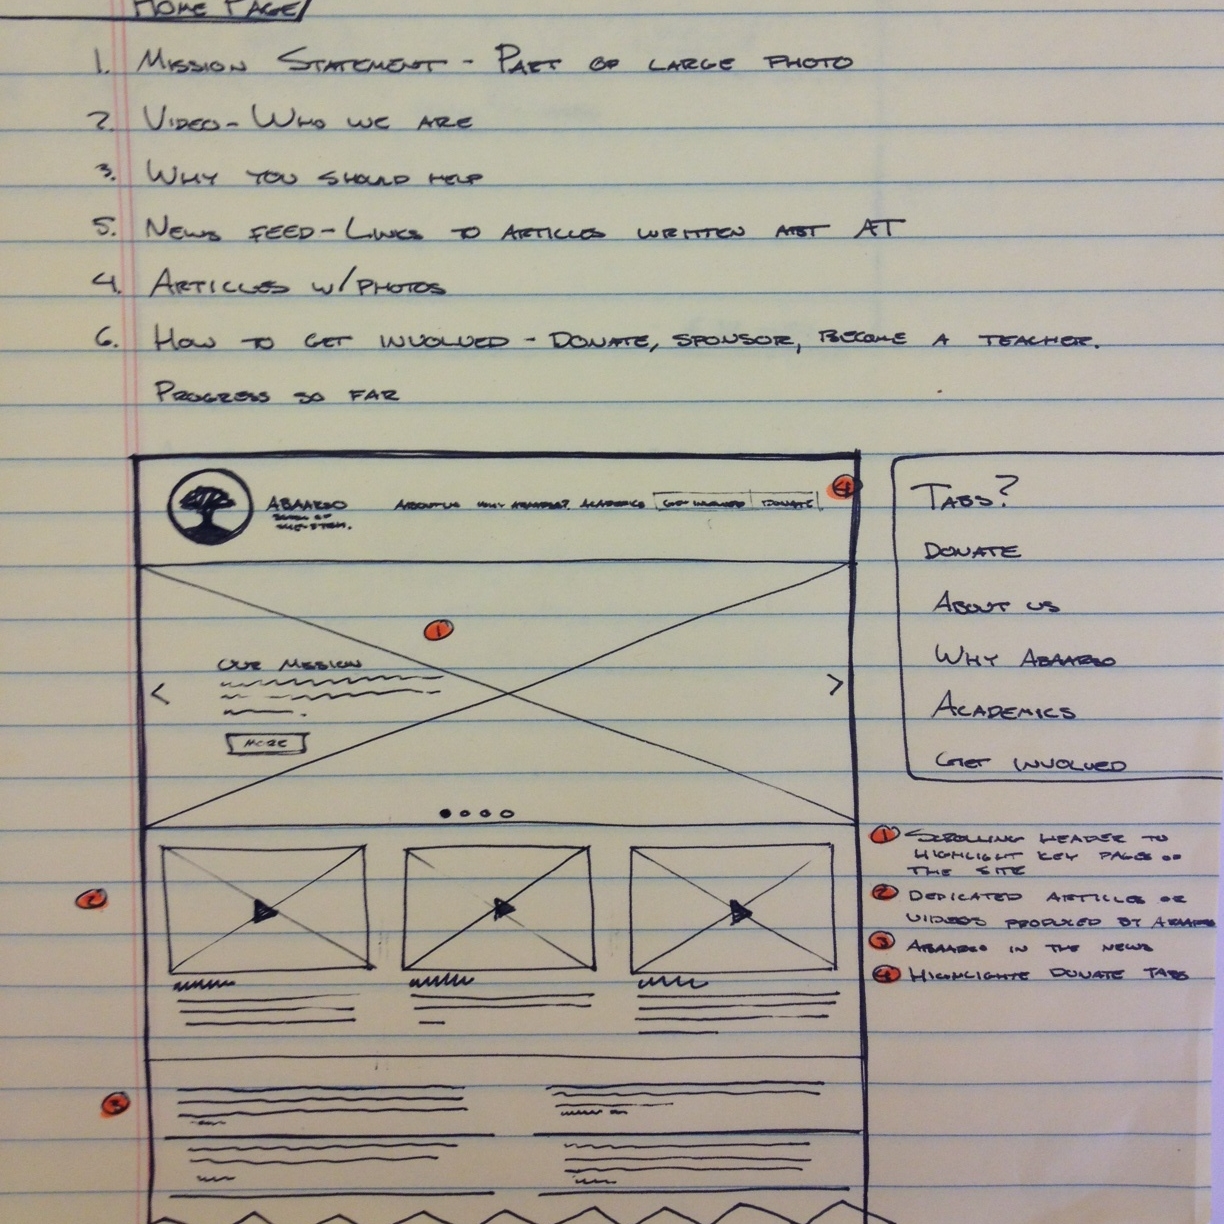 HOME PAGE
1. MISSION STATEMENT - PART OF LARGE PHOTO
2. VIDEO - WHO WE ARE
3. WHY YOU SHOULD HELP
5. NEWS FEED - LINKS TO ARTICLES WRITTEN ABT AT
4. ARTICLES W/PHOTOS
6. HOW TO GET INVOLVED - DONATE, SPONSOR, BECOME A TEACHER.
PROGRESS SO FAR
4
ABAARSO
ABOUT US WHY ABAARSO? ACADEMICS GET INVOLVED DONATE
1
OUR MISSION
< >
MORE
2
3
TABS?
DONATE
ABOUT US
WHY ABAARSO
ACADEMICS
GET INVOLVED
1 SCROLLING HEADER TO
HIGHLIGHT KEY PAGES OF
THE SITE
2 DEDICATED ARTICLES OR
VIDEOS PRODUCED BY ABAARSO
3 ABAARSO IN THE NEWS
4 HIGHLIGHTE DONATE TABS